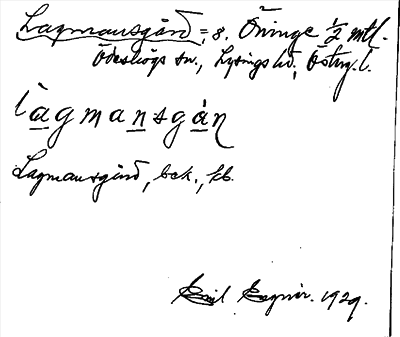 Lagmansgård, = 8. Öninge ½ mtl.
Ödeshögs sn., Lysings hd, Östog. l.
làgmansgån
Lagmansgård, bek., kb.
1929.